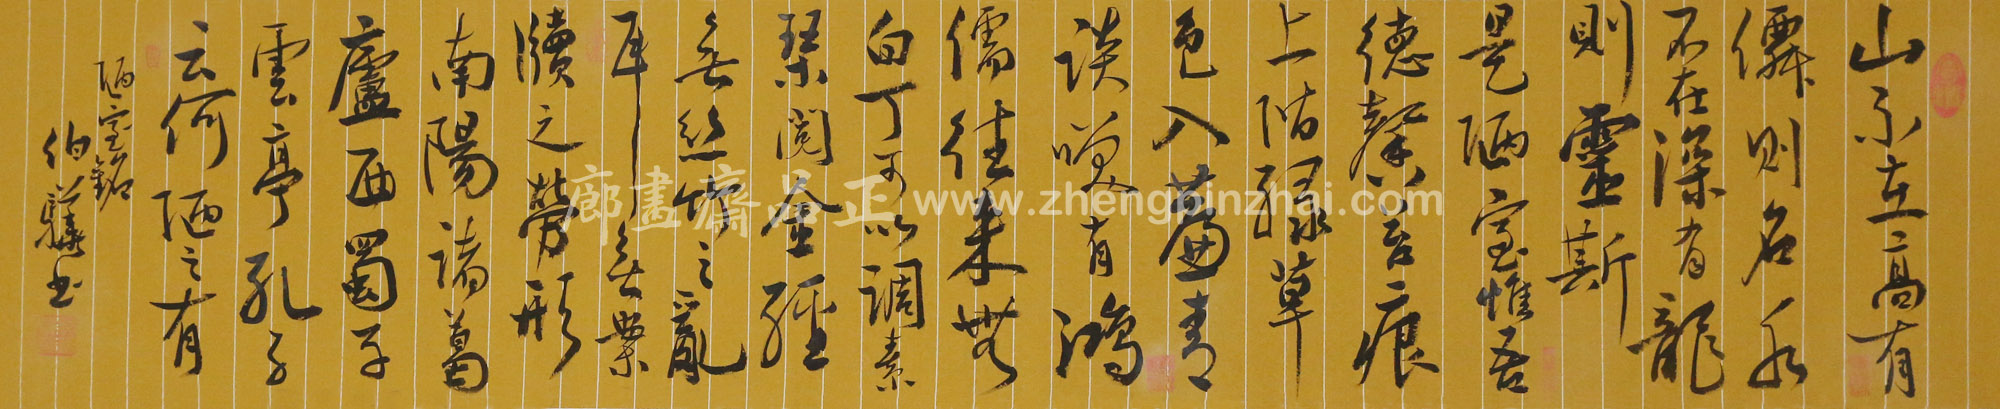 山不在高有
僊則名水
不在深有龍
則靈斯
是陋室惟吾
德馨苔痕
上階緑草
色入簾青
談笑有鴻
儒往来無
白丁可以調素
琴閲金經
無絲竹之亂
耳無案
牘之勞形
南陽諸葛
廬西蜀子
雲亭孔子
云何陋之有
陋室銘
伯驊書
廊畫齋品正 www.zhengpinzhai.com